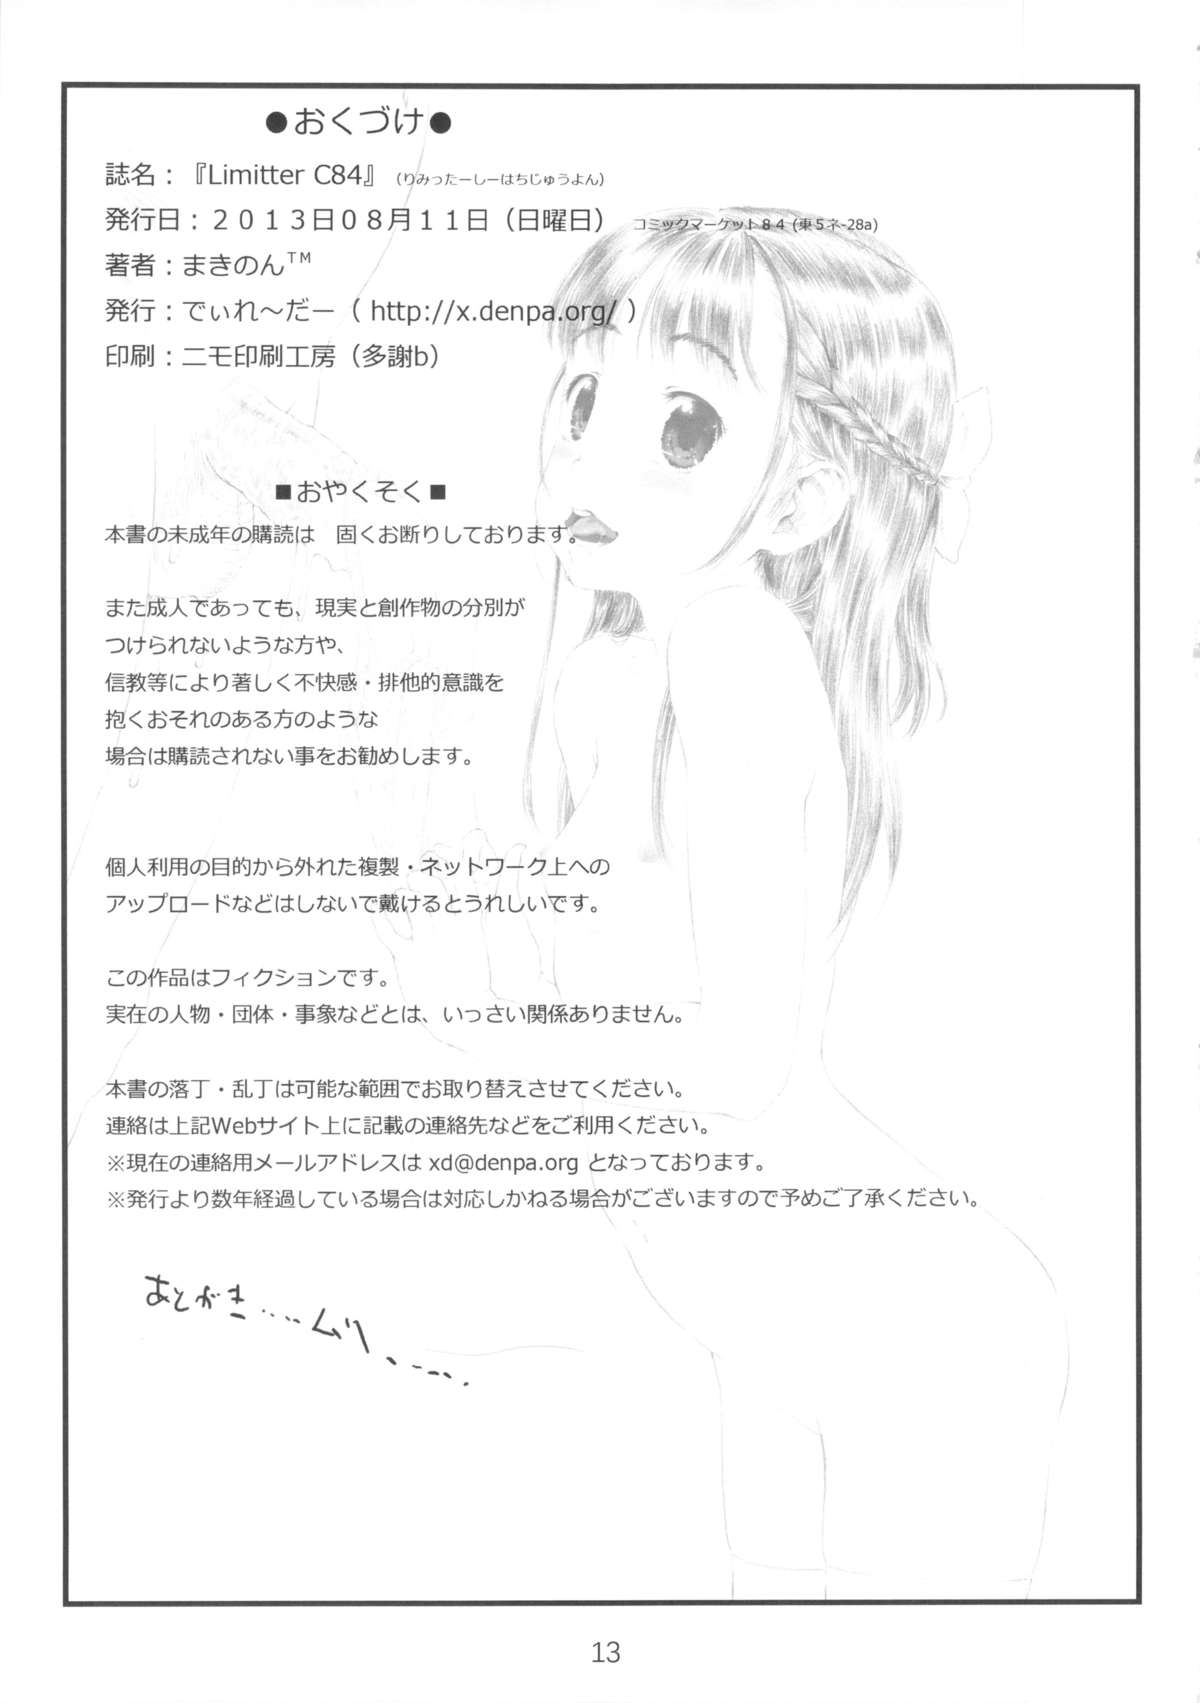 ●おくづけ●
誌名：『Limitter C84』（りみったーしーはちじゅうよん）
発行日：２０１３日０８月１１日（日曜日）　コミックマーケット８４ (東５ネ-28a)
著者：まきのん™
発行：でぃれ～だー（ http://x.denpa.org/ ）
印刷：ニモ印刷工房（多謝b）
■おやくそく■
本書の未成年の購読は　固くお断りしております。
また成人であっても、現実と創作物の分別が
つけられないような方や、
信教等により著しく不快感・排他的意識を
抱くおそれのある方のような
場合は購読されない事をお勧めします。
個人利用の目的から外れた複製・ネットワーク上への
アップロードなどはしないで戴けるとうれしいです。
この作品はフィクションです。
実在の人物・団体・事象などとは、いっさい関係ありません。
本書の落丁・乱丁は可能な範囲でお取り替えさせてください。
連絡は上記Webサイト上に記載の連絡先などをご利用ください。
※現在の連絡用メールアドレスは xd@denpa.org となっております。
※発行より数年経過している場合は対応しかねる場合がございますので予めご了承ください。
あとがき‥‥ムリ、‥‥．
13